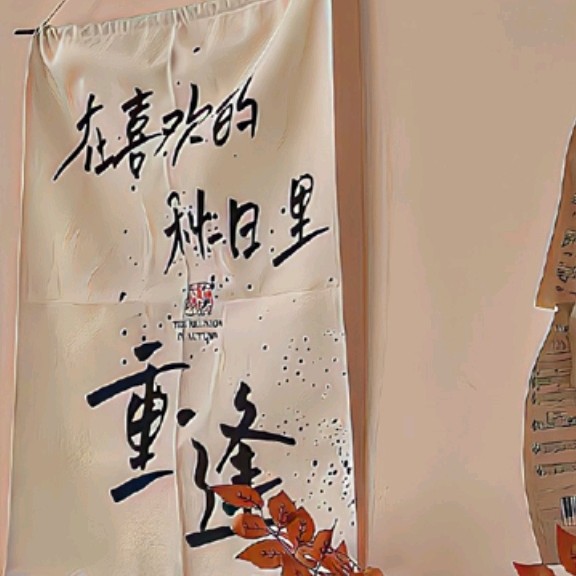 在喜欢的
秋日里
THE REUNION
IN AUTUMN
重逢